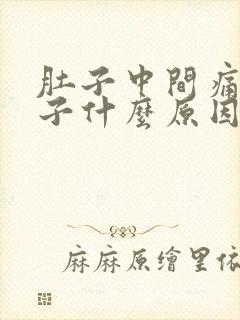 肚子中間痛
子什麼原因
麻麻原繪里依